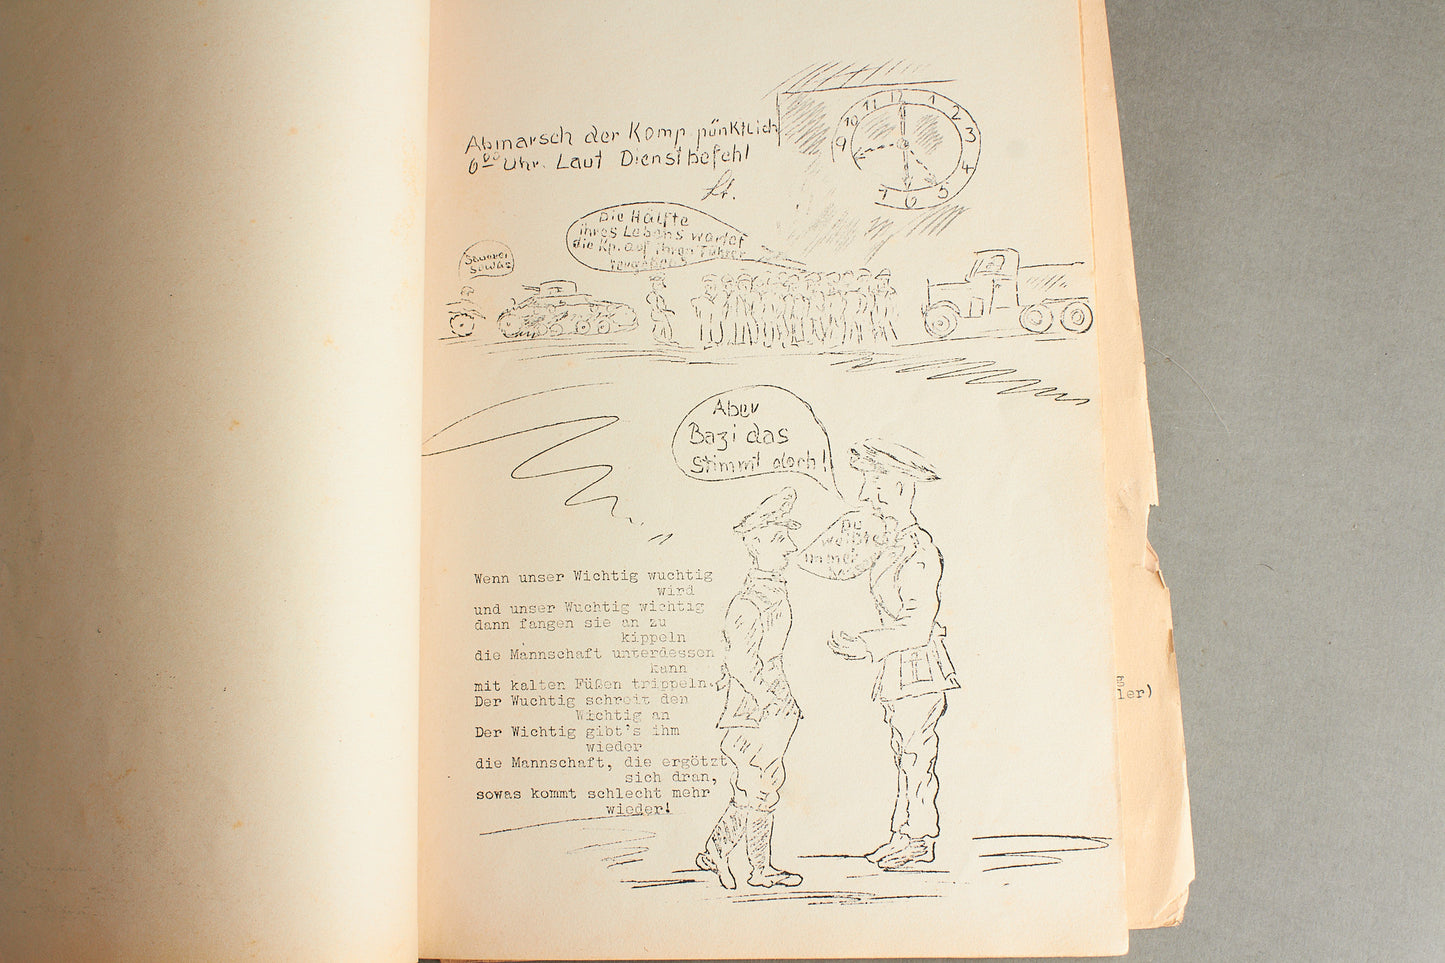 Abmarsch der Komp. pünktlich
6⁰⁰ Uhr. Laut Dienstbefehl
Lt.
11 12 1
10 2
9 3
4
7 6 5
Die Hälfte
ihres Lebens wartet
die Kp. auf ihren Führer
vergebens
Sauerei
sowas
Aber
Bazi das
stimmt doch!
Du
weißt es
immer
Wenn unser Wichtig wuchtig
wird
und unser Wuchtig wichtig
dann fangen sie an zu
kippeln
die Mannschaft unterdessen
kann
mit kalten Füßen trippeln.
Der Wuchtig schreit den
Wichtig an
Der Wichtig gibt's ihm
wieder
die Mannschaft, die ergötzt
sich dran,
sowas kommt schlecht mehr
wieder!
g
ler)